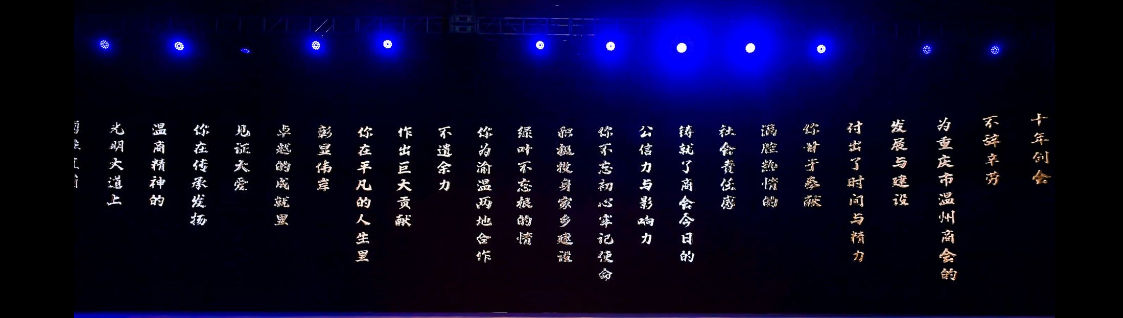 十年创会
不辞辛劳
为重庆市温州商会的
发展与建设
付出了时间与精力
你甘于奉献
满腔热情的
社会责任感
铸就了商会今日的
公信力与影响力
你不忘初心牢记使命
积极投身家乡建设
绿叶不忘根的情
你为渝温两地合作
不遗余力
作出巨大贡献
你在平凡的人生里
彰显伟岸
卓越的成就里
见证大爱
你在传承发扬
温商精神的
光明大道上